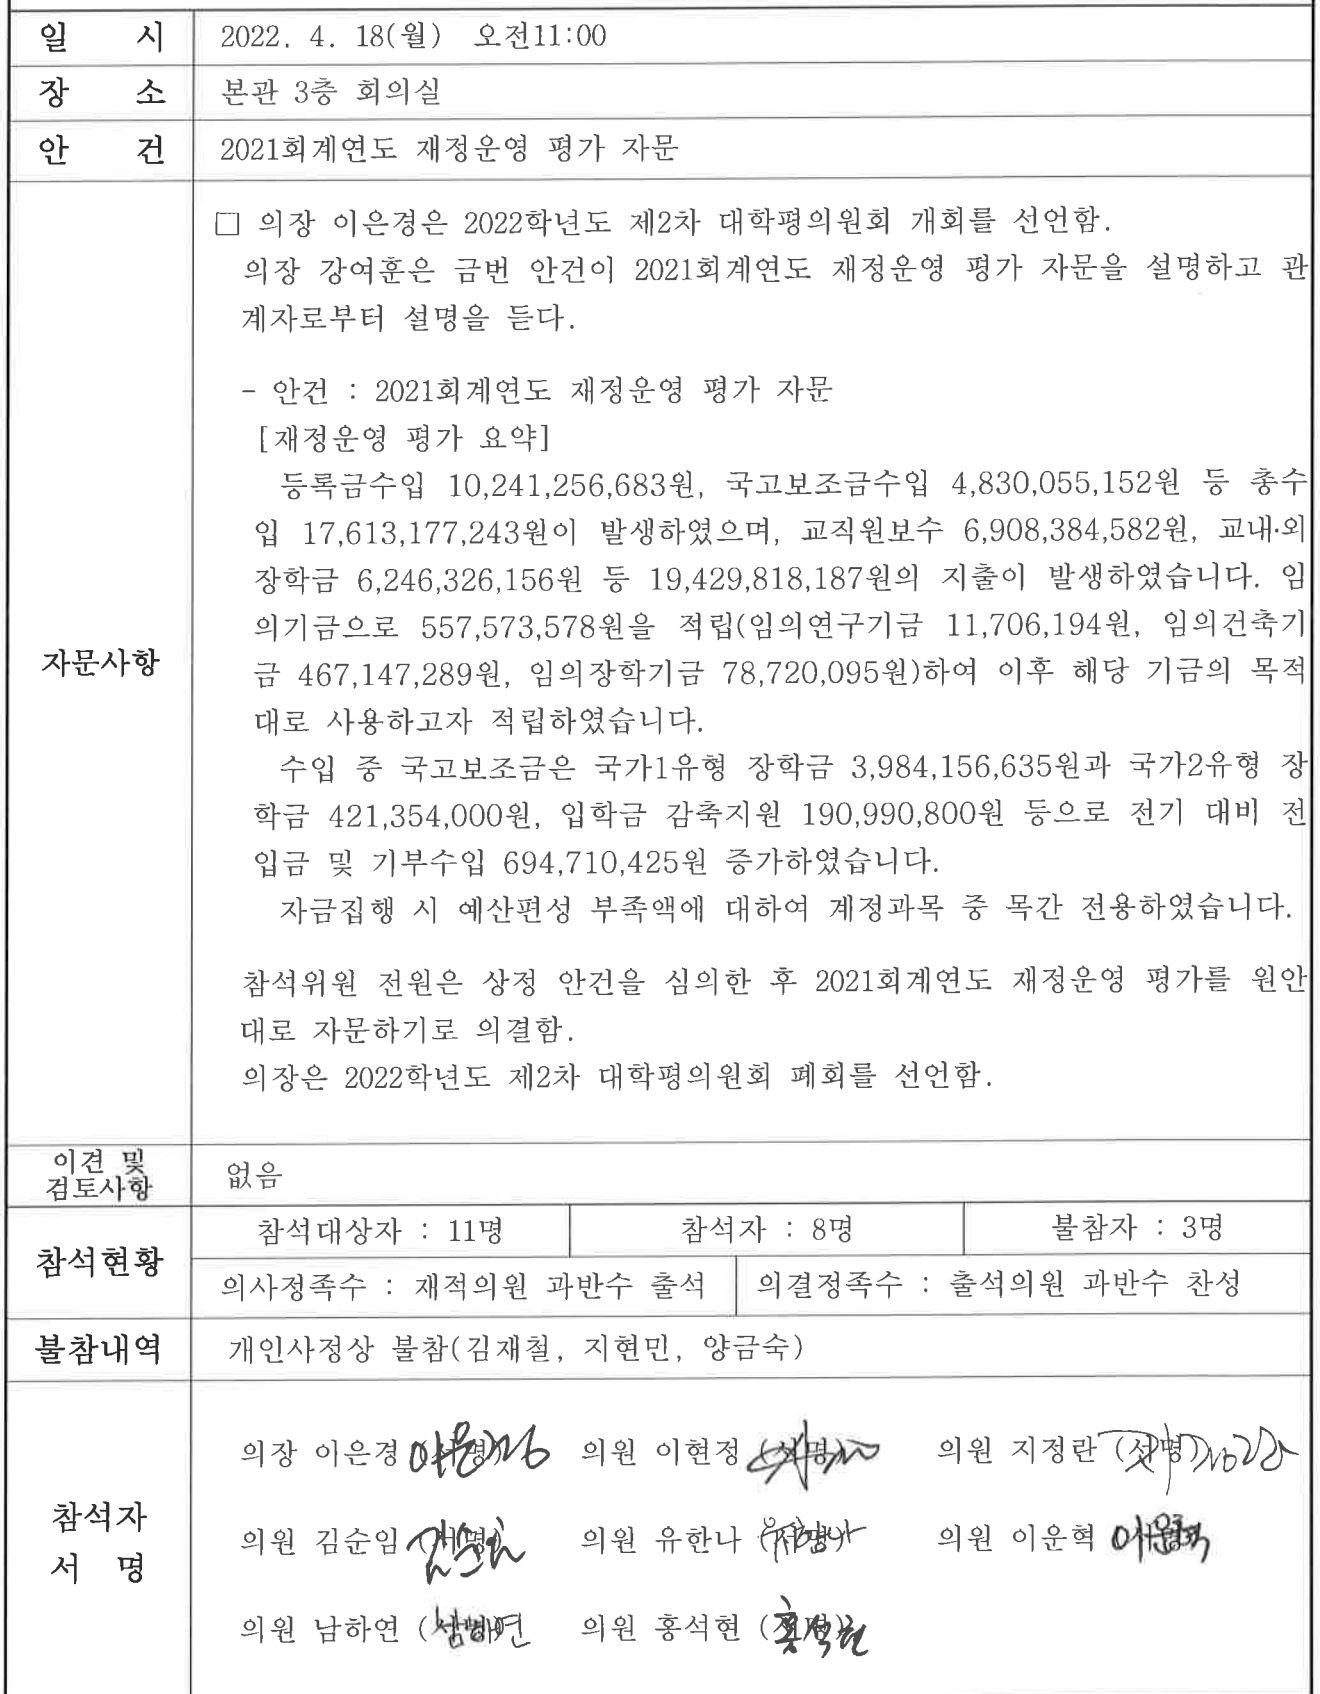 일 시 2022. 4. 18(월) 오전11:00
장 소 본관 3층 회의실
안 건 2021회계연도 재정운영 평가 자문
자문사항
□ 의장 이은경은 2022학년도 제2차 대학평의원회 개회를 선언함.
의장 강여훈은 금번 안건이 2021회계연도 재정운영 평가 자문을 설명하고 관
계자로부터 설명을 듣다.
- 안건 : 2021회계연도 재정운영 평가 자문
[재정운영 평가 요약]
등록금수입 10,241,256,683원, 국고보조금수입 4,830,055,152원 등 총수
입 17,613,177,243원이 발생하였으며, 교직원보수 6,908,384,582원, 교내·외
장학금 6,246,326,156원 등 19,429,818,187원의 지출이 발생하였습니다. 임
의기금으로 557,573,578원을 적립(임의연구기금 11,706,194원, 임의건축기
금 467,147,289원, 임의장학기금 78,720,095원)하여 이후 해당 기금의 목적
대로 사용하고자 적립하였습니다.
수입 중 국고보조금은 국가1유형 장학금 3,984,156,635원과 국가2유형 장
학금 421,354,000원, 입학금 감축지원 190,990,800원 등으로 전기 대비 전
입금 및 기부수입 694,710,425원 증가하였습니다.
자금집행 시 예산편성 부족액에 대하여 계정과목 중 목간 전용하였습니다.
참석위원 전원은 상정 안건을 심의한 후 2021회계연도 재정운영 평가를 원안
대로 자문하기로 의결함.
의장은 2022학년도 제2차 대학평의원회 폐회를 선언함.
이견 및
검토사항
없음
참석현황
참석대상자 : 11명 참석자 : 8명 불참자 : 3명
의사정족수 : 재적의원 과반수 출석 의결정족수 : 출석의원 과반수 찬성
불참내역 개인사정상 불참(김재철, 지현민, 양금숙)
참석자
서 명
의장 이은경 (서명) 이은경 의원 이현정 (서명) 의원 지정란 (서명)
의원 김순임 (서명) 김순임 의원 유한나 (서명) 유한나 의원 이운혁 이운혁
의원 남하연 (서명) 남하연 의원 홍석현 (서명) 홍석현